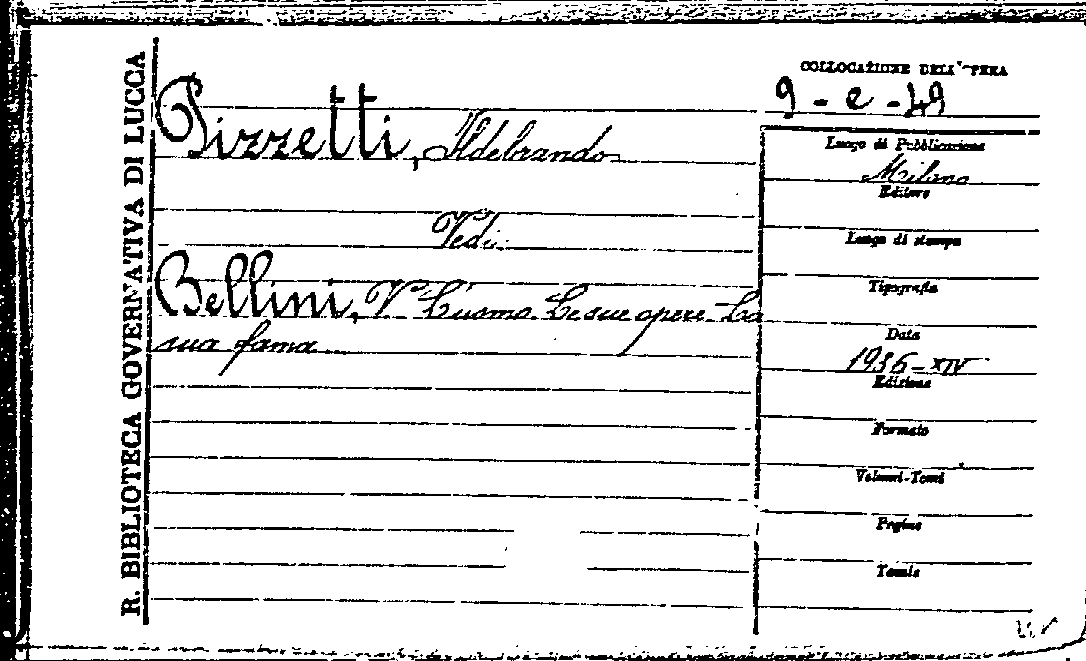 R. BIBLIOTECA GOVERNATIVA DI LUCCA
COLLOCAZIONE DELL'OPERA
9 - e - 49
Pizzetti, Ildebrando
Vedi:
Bellini, V. L'uomo. Le sue opere. La
sua fama
Luogo di Pubblicazione
Milano
Editore
Luogo di stampa
Tipografia
Data
1936-XIV
Edizione
Formato
Volumi-Tomi
Pagine
Tavole